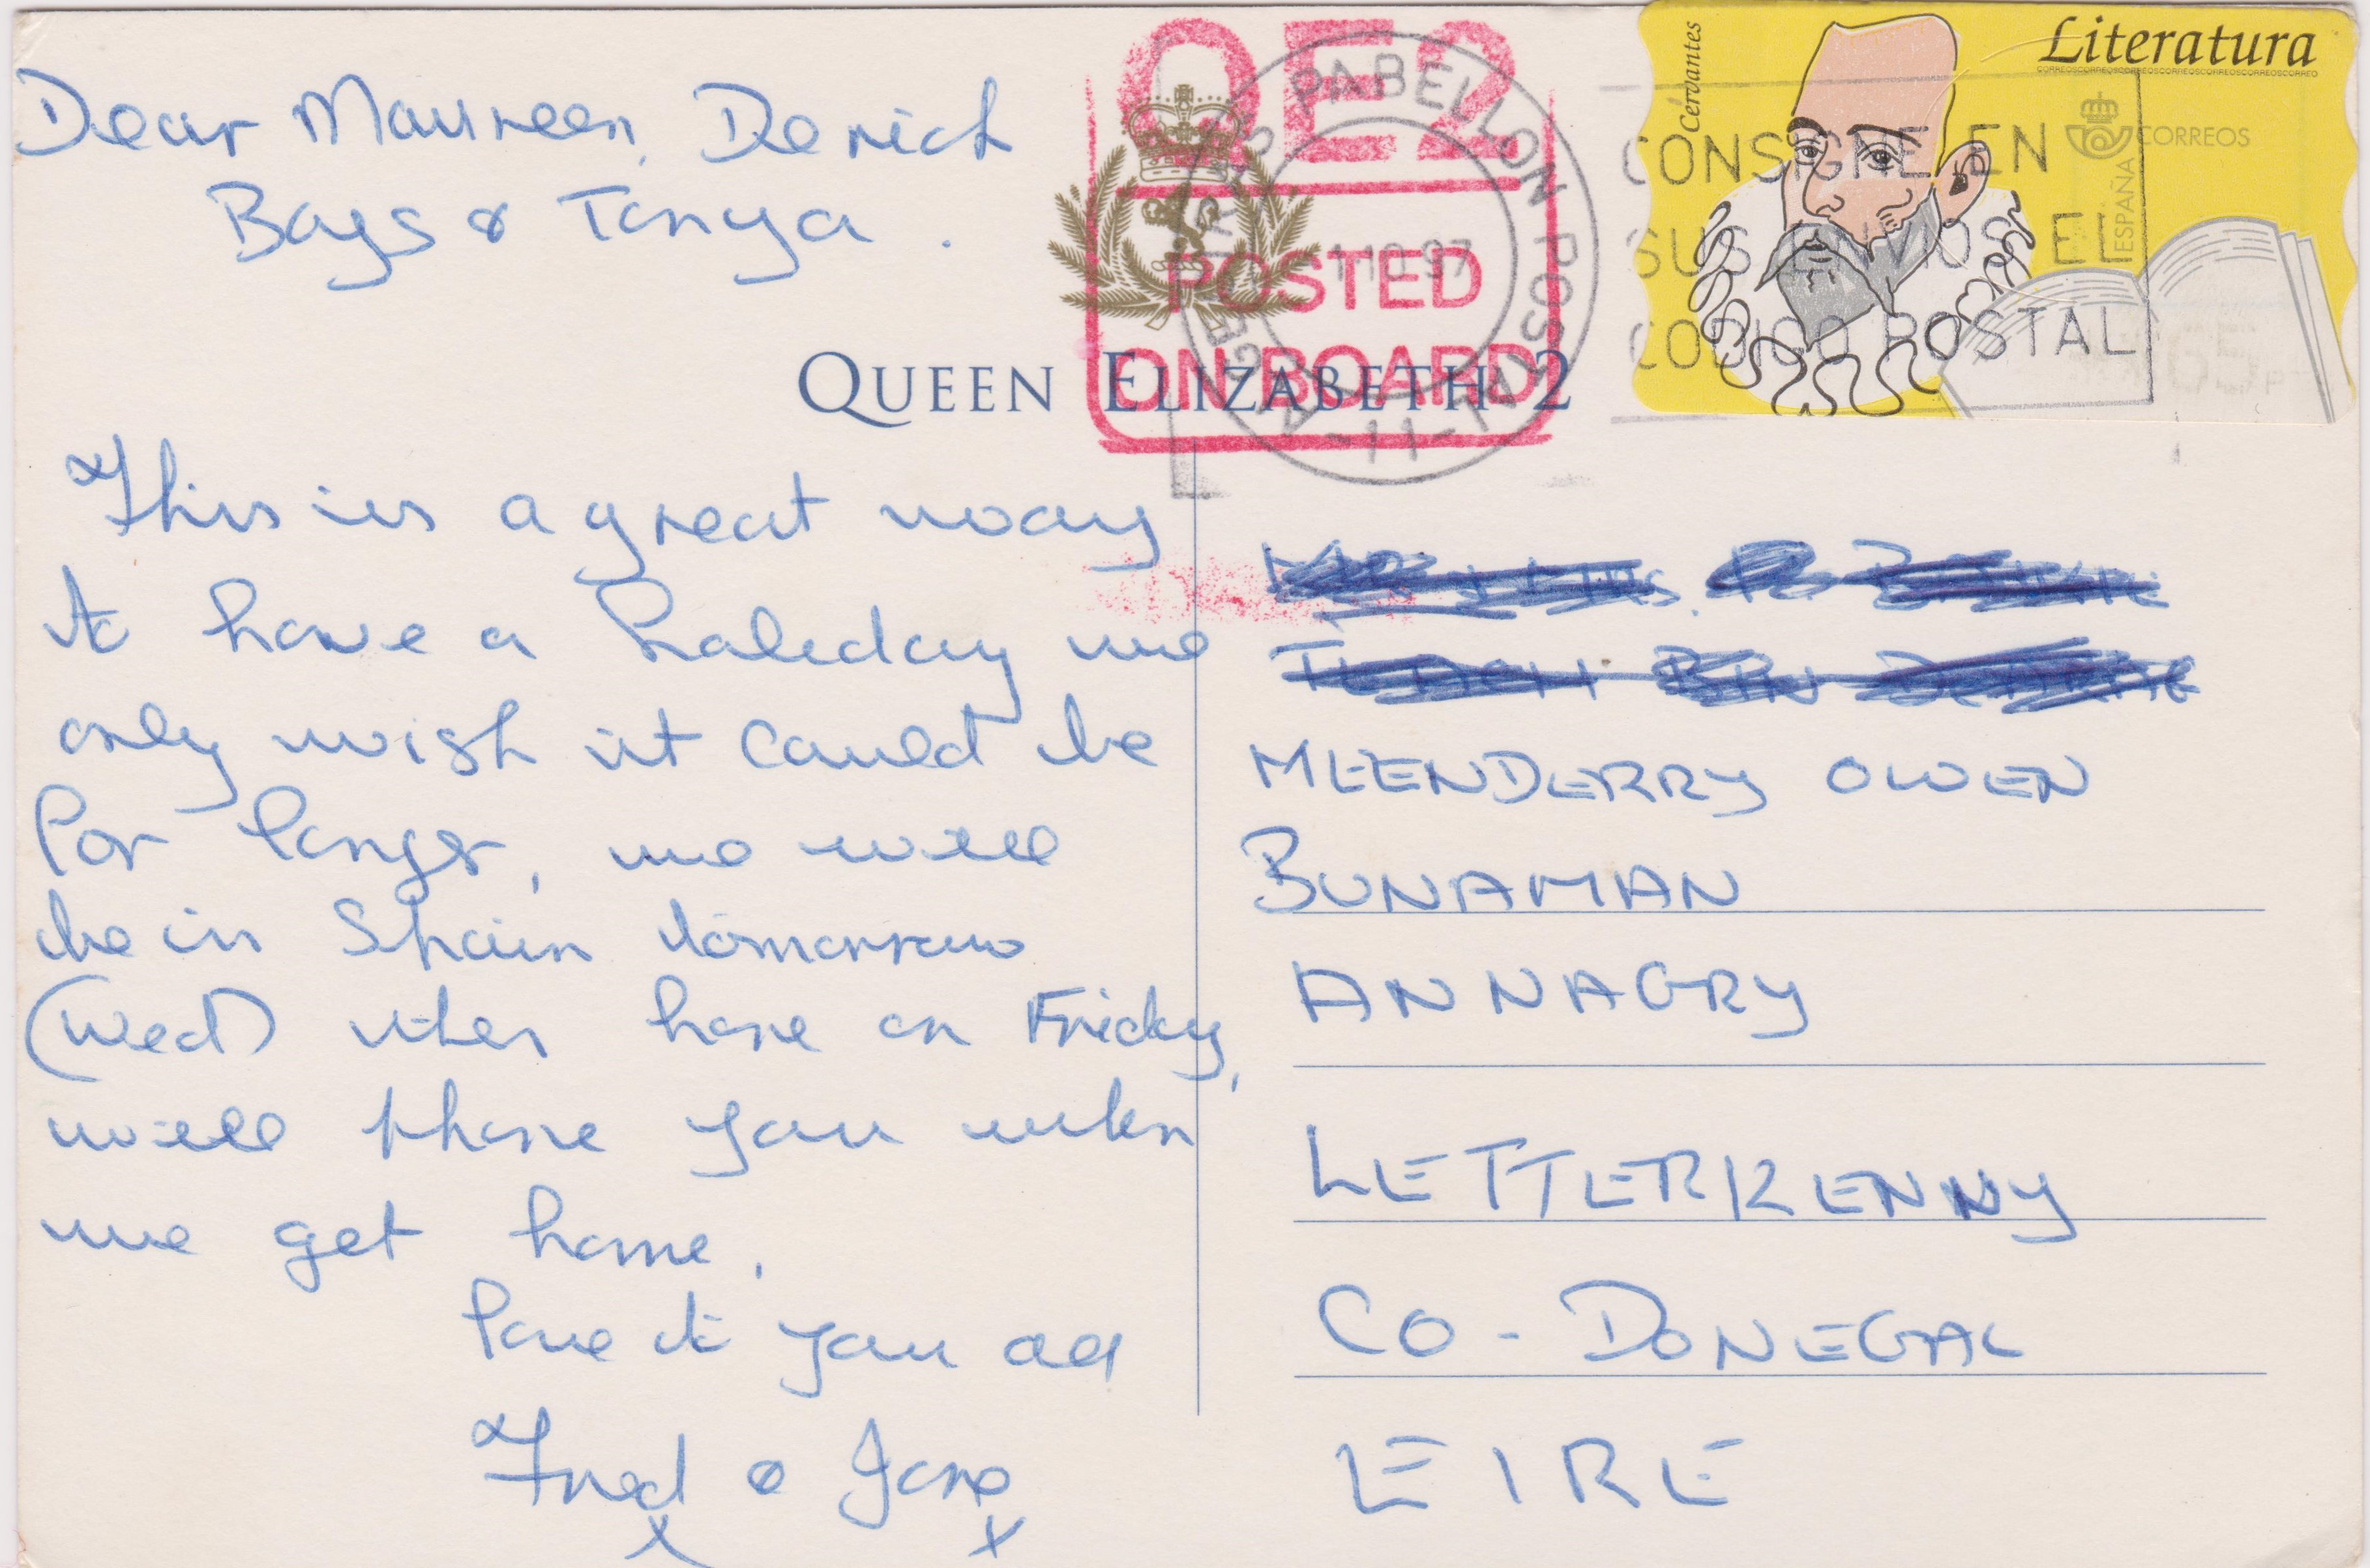 Dear Maureen, Derick
Boys & Tonya.
QE2
POSTED
ON BOARD
QUEEN ELIZABETH 2
PABELLON POSTAL
Cervantes
Literatura
CORREOS
ESPAÑA
CONSIGNE EN
SUS ENVIOS EL
CODIGO POSTAL
This is a great way
to have a holiday we
only wish it could be
for longer, we will
be in Spain tomorrow
(Wed) then home on Friday,
will phone you when
we get home.
love to you all
Fred & Jane
x x
MEENDERRY OWEN
BUNAMAN
ANNAGRY
LETTERKENNY
CO - DONEGAL
EIRE